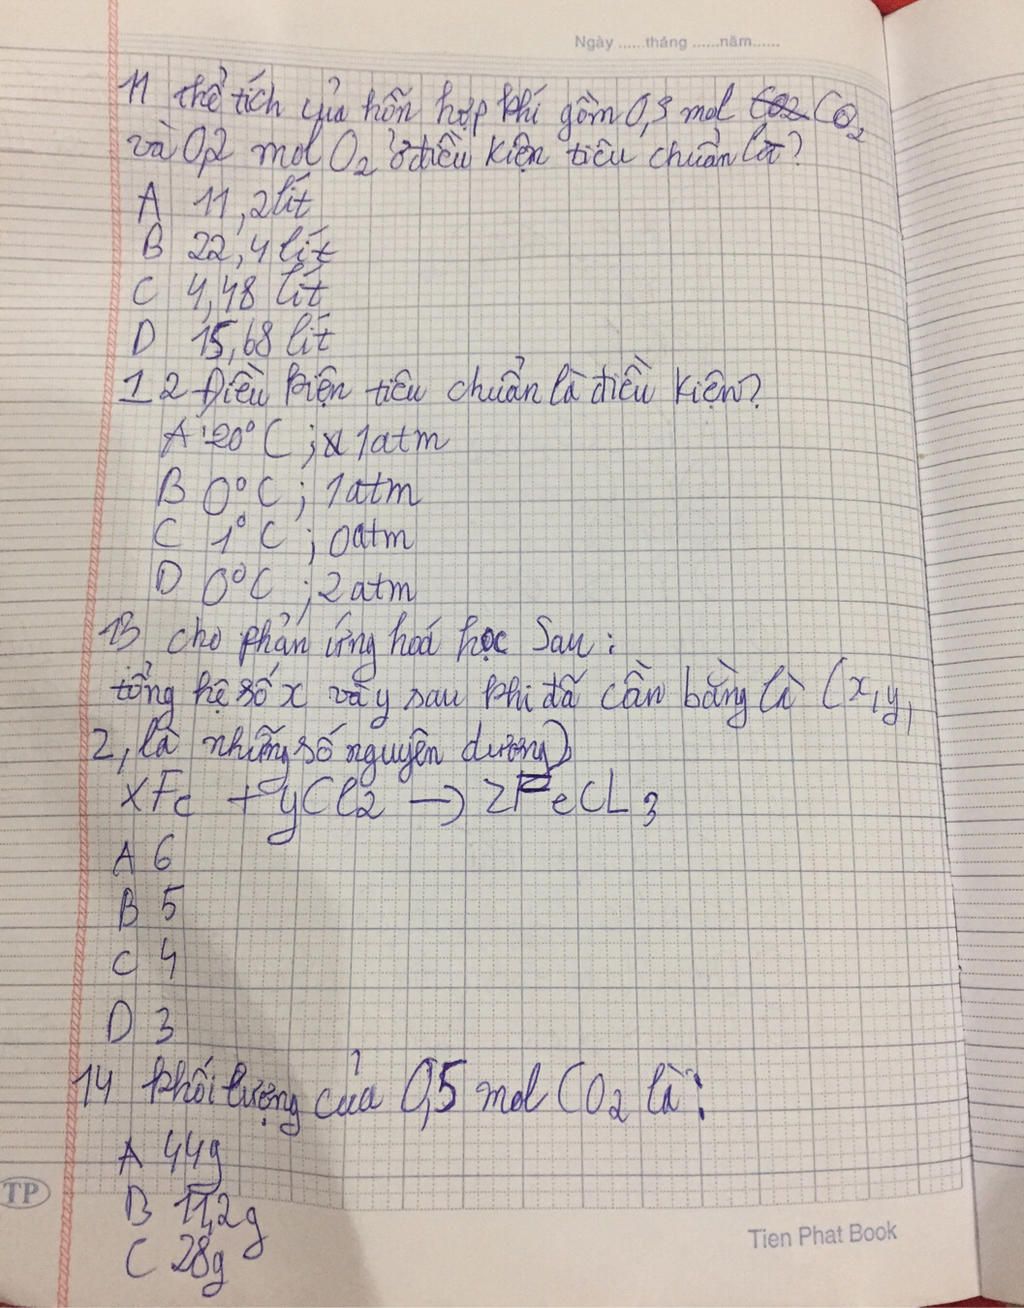 Ngày ......tháng ......năm......
11 thể tích của hỗn hợp khí gồm 0,3 mol CO2 CO2
và 0,2 mol O2 ở điều kiện tiêu chuẩn là?
A 11,2 lít
B 22,4 lít
C 4,48 lít
D 15,68 lít
12 Điều kiện tiêu chuẩn là điều kiện?
A 20°C ; 1atm
B 0°C ; 1atm
C 1°C ; 0atm
D 0°C ; 2atm
13 cho phản ứng hoá học Sau :
tổng hệ số x và y sau khi đã cần bằng là (x,y,
2, là những số nguyên dương)
xFe + yCl2 → zFeCL3
A 6
B 5
C 4
D 3
14 khối lượng của 0,5 mol CO2 là :
A 44g
B 11,2g
C 28g
TP
Tien Phat Book